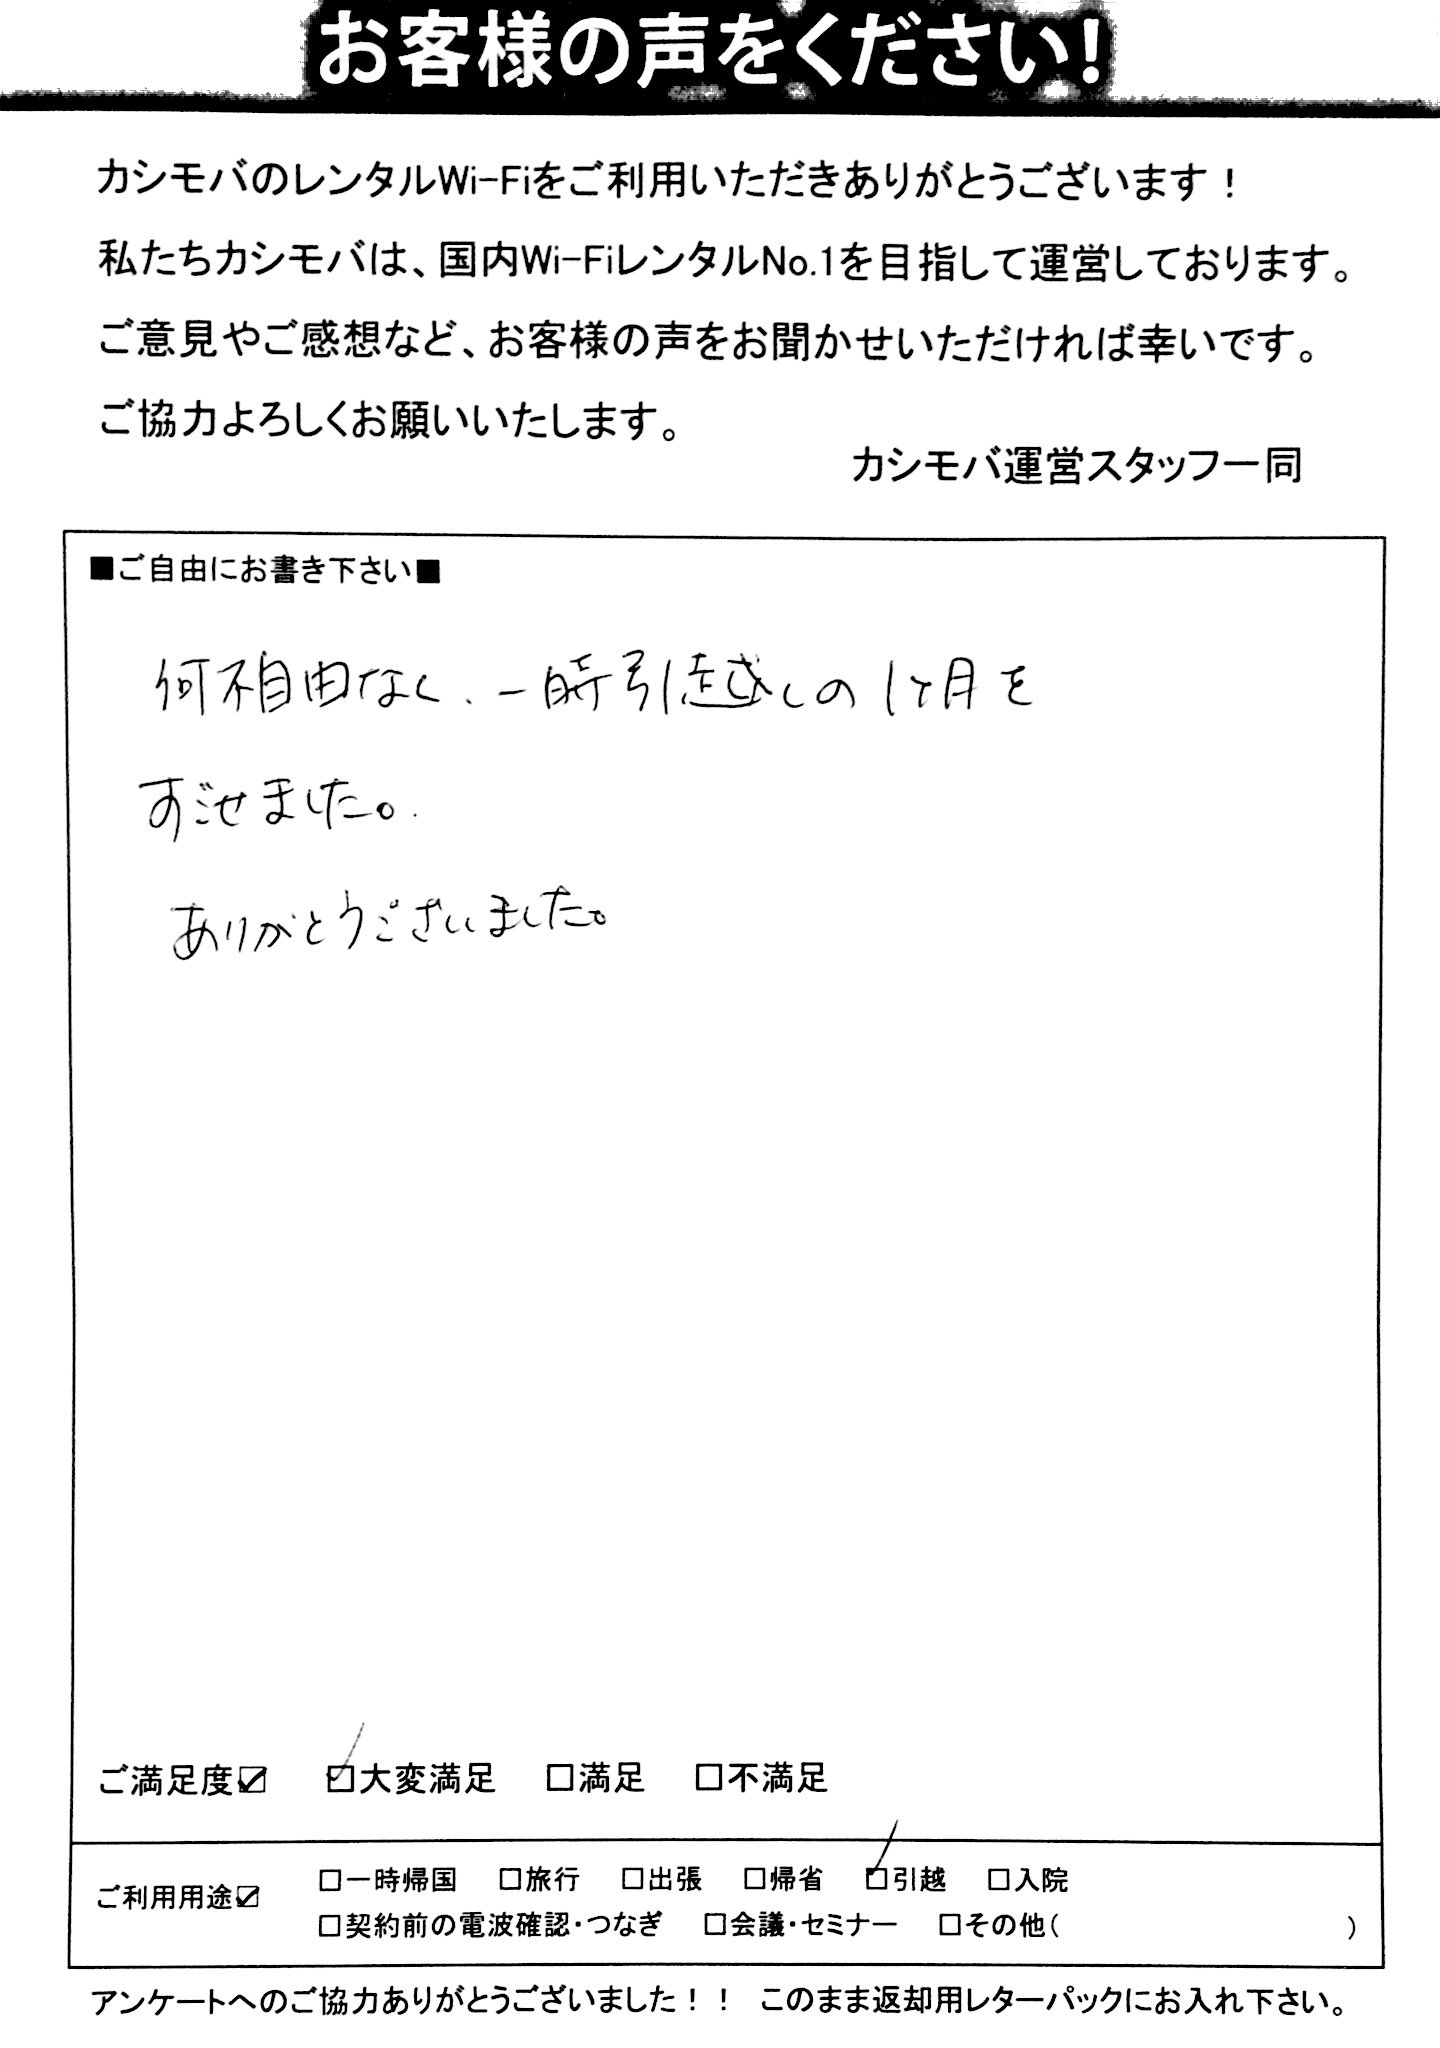 お客様の声をください!
カシモバのレンタルWi-Fiをご利用いただきありがとうございます！
私たちカシモバは、国内Wi-FiレンタルNo.1を目指して運営しております。
ご意見やご感想など、お客様の声をお聞かせいただければ幸いです。
ご協力よろしくお願いいたします。
カシモバ運営スタッフ一同
■ご自由にお書き下さい■
何不自由なく、一時引越しの1ヶ月を
すごせました。
ありがとうございました。
ご満足度☑ ☑大変満足 □満足 □不満足
ご利用用途☑ □一時帰国 □旅行 □出張 □帰省 ☑引越 □入院
□契約前の電波確認・つなぎ □会議・セミナー □その他( )
アンケートへのご協力ありがとうございました！！ このまま返却用レターパックにお入れ下さい。